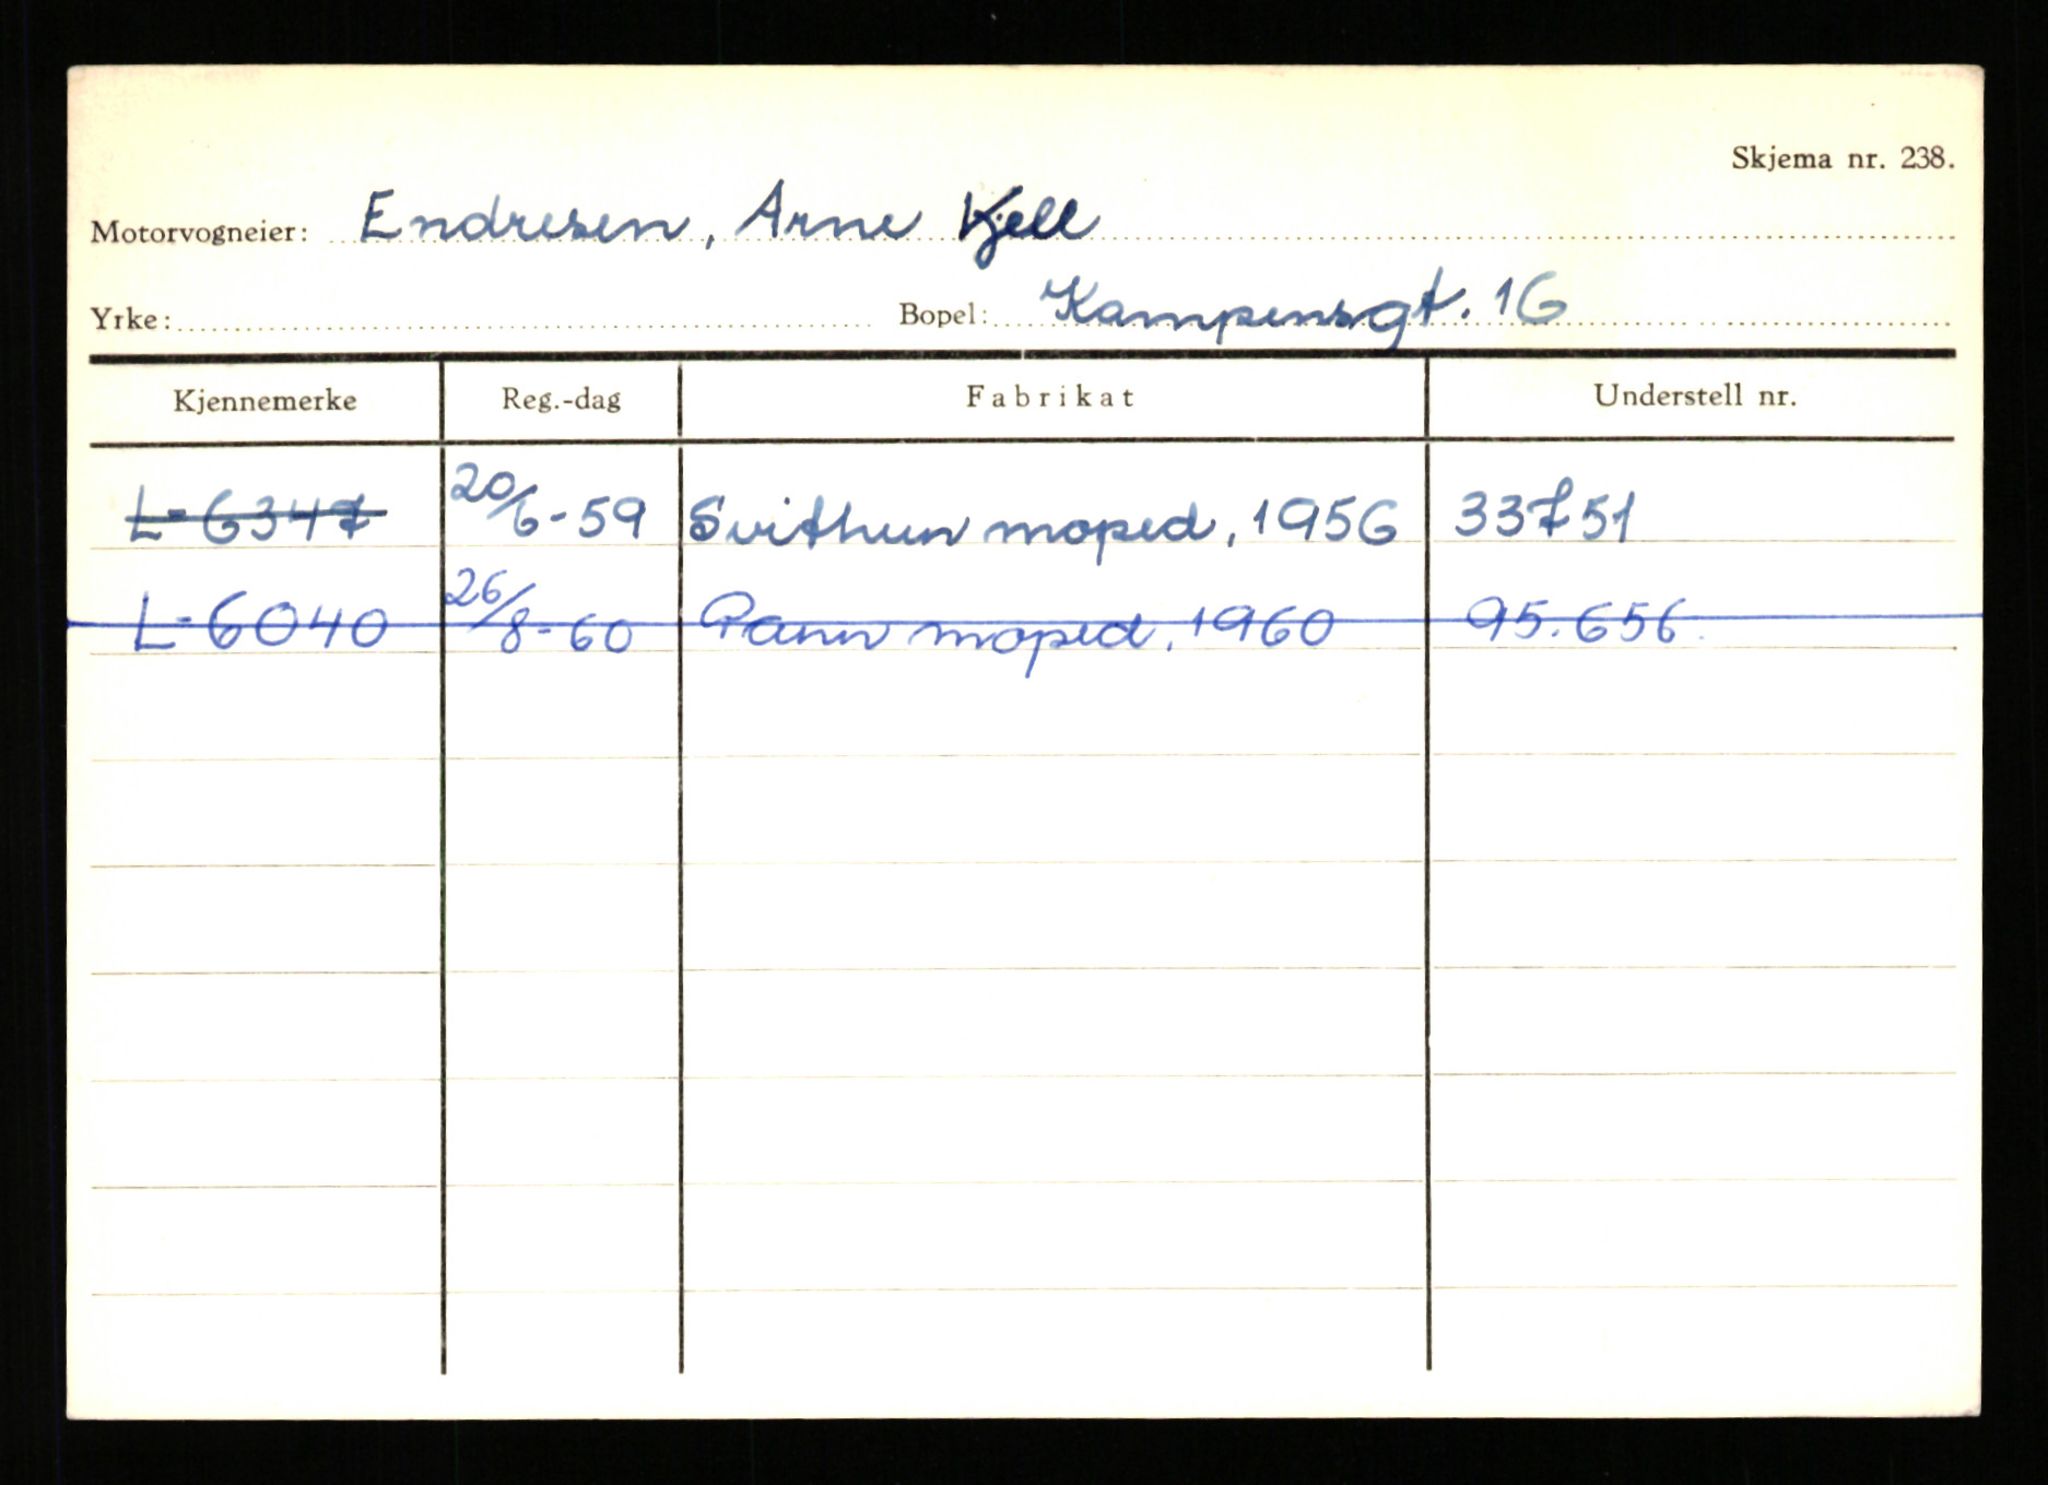 Skjema nr. 238.
Motorvogneier: Endresen, Arne Kjell
Yrke: Bopel: Kampensgt. 16
Kjennemerke Reg.-dag Fabrikat Understell nr.
L-6347 20/6-59 Svithun moped, 1956 33751
L-6040 26/8-60 Pann moped, 1960 95.656.